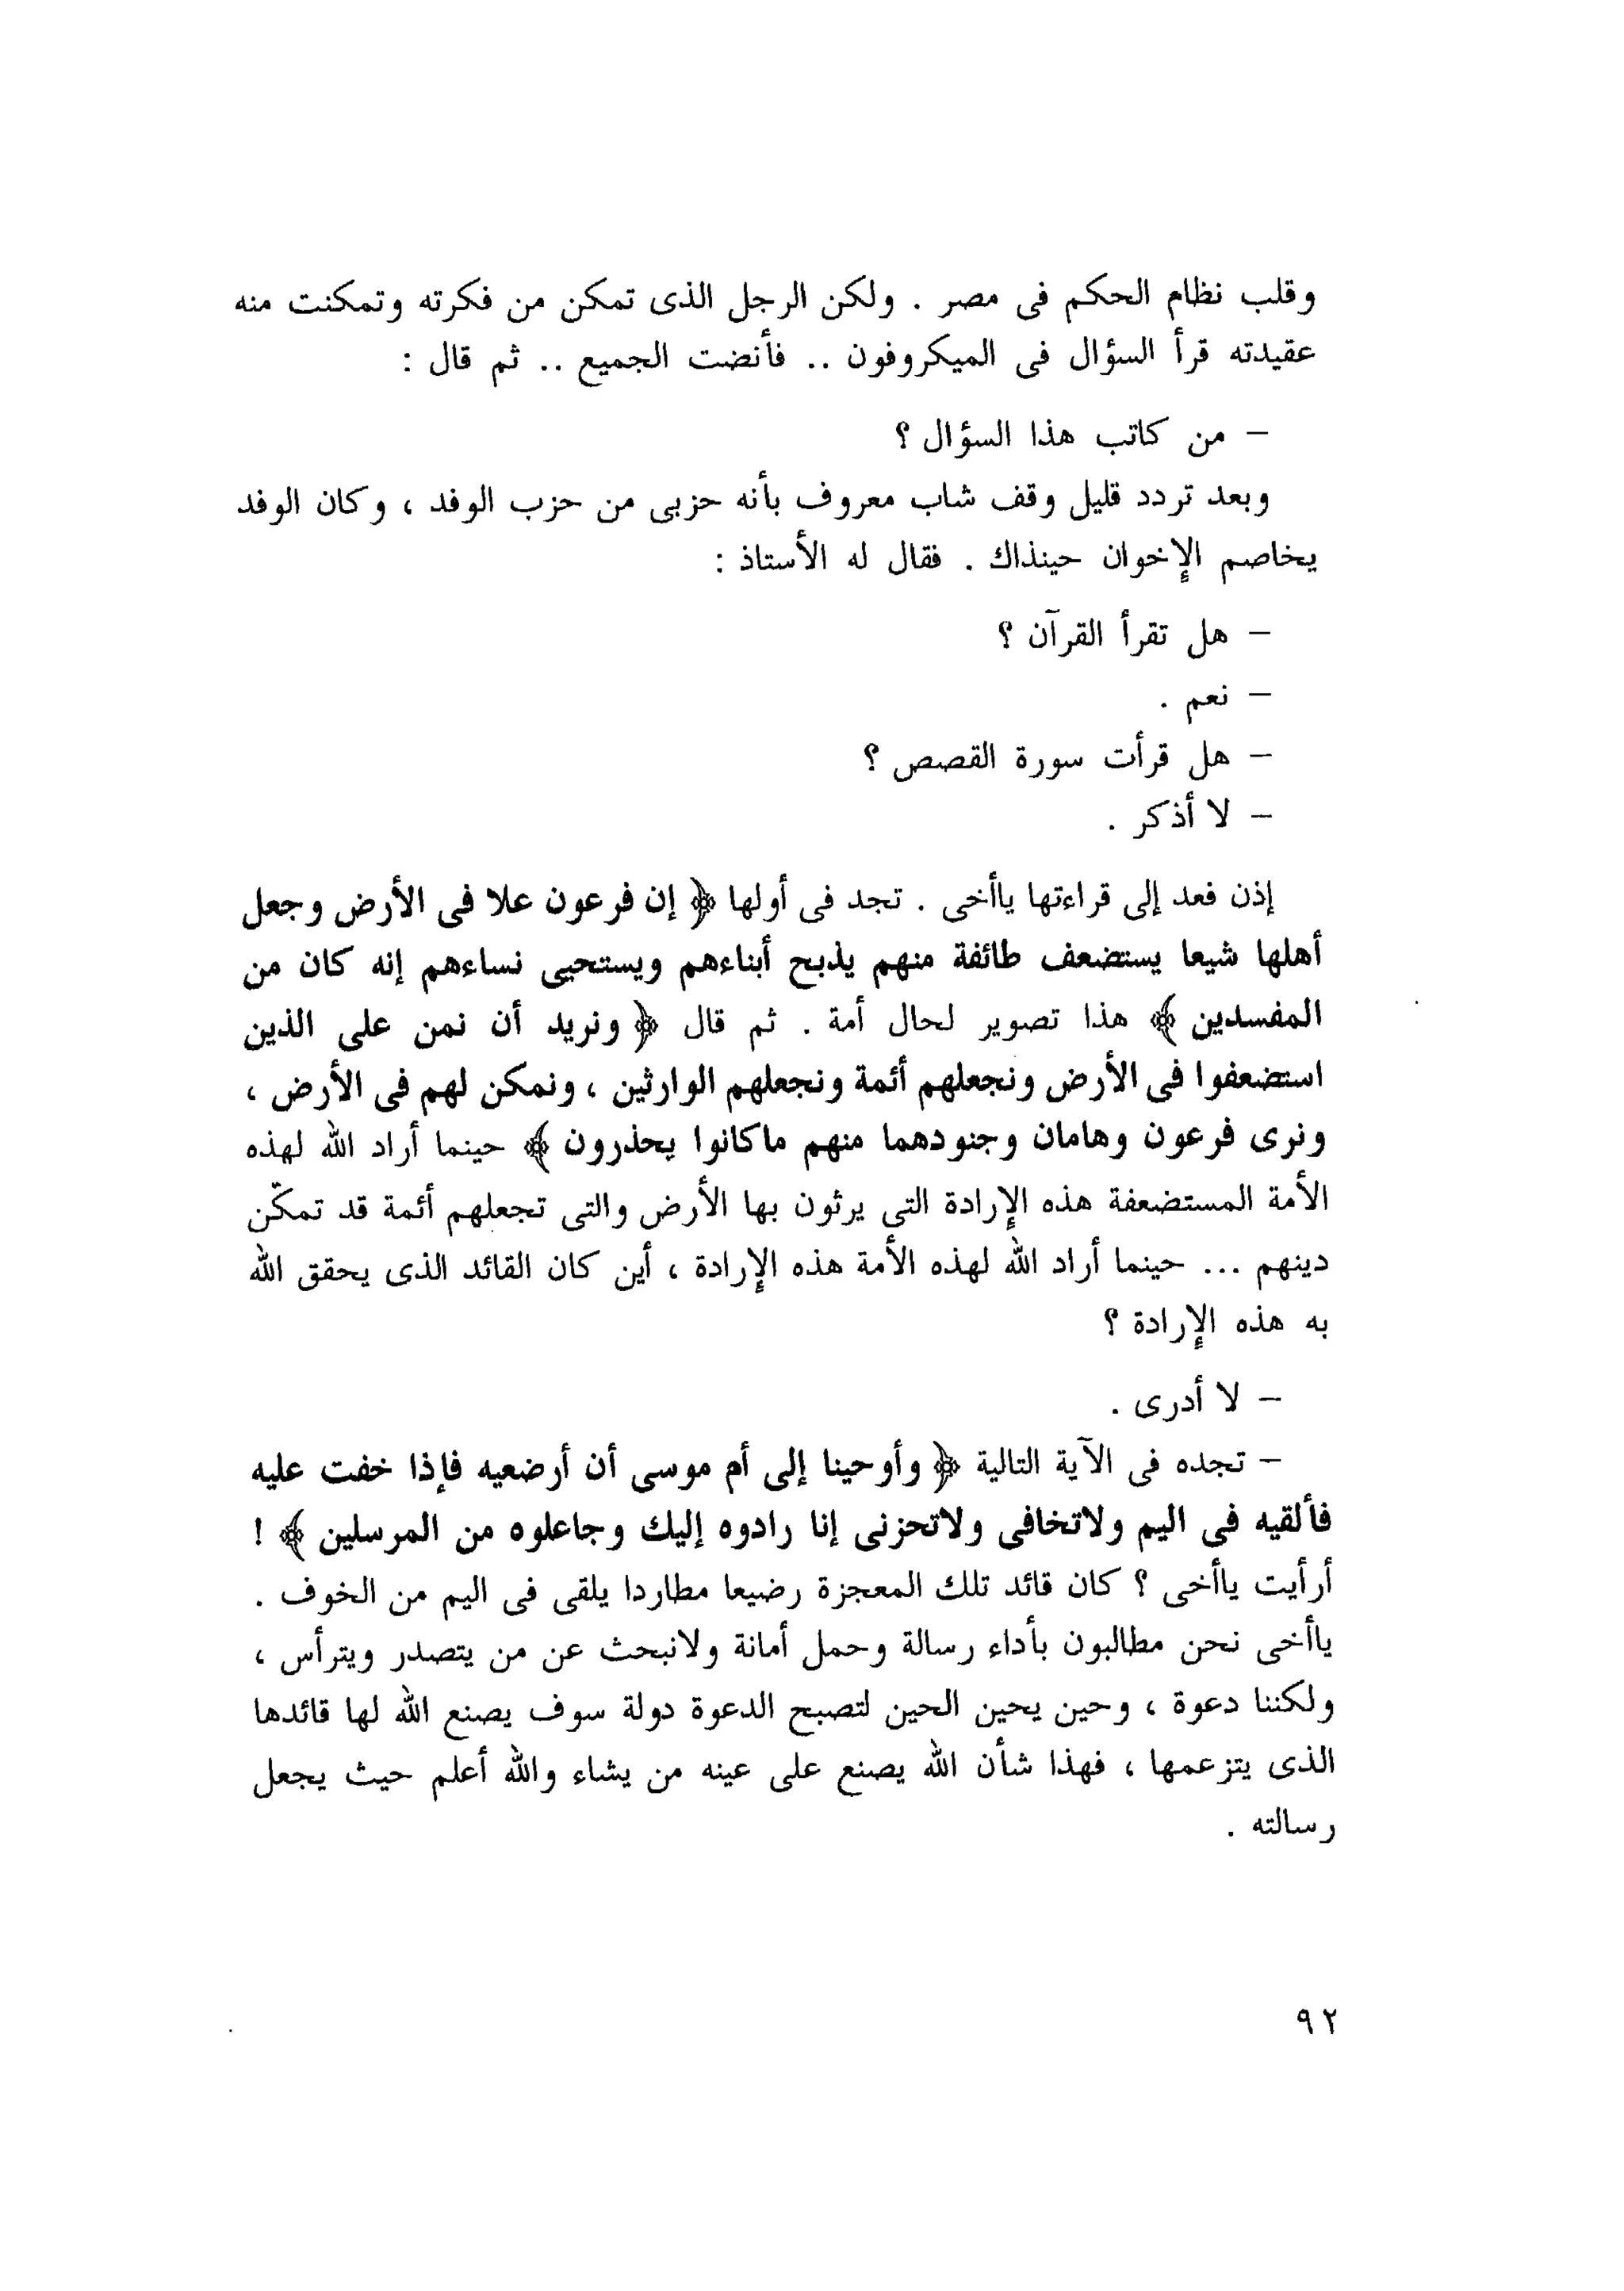 وقلب نظام الحكم فى مصر . ولكن الرجل الذى تمكن من فكرته وتمكنت منه
عقيدته قرأ السؤال فى الميكروفون .. فأنضت الجميع .. ثم قال :
– من كاتب هذا السؤال ؟
وبعد تردد قليل وقف شاب معروف بأنه حزبى من حزب الوفد ، وكان الوفد
يخاصم الإخوان حينذاك . فقال له الأستاذ :
– هل تقرأ القرآن ؟
– نعم .
– هل قرأت سورة القصص ؟
– لا أذكر .
إذن فعد إلى قراءتها ياأخى . تجد فى أولها ﴿ إن فرعون علا فى الأرض وجعل
أهلها شيعا يستضعف طائفة منهم يذبح أبناءهم ويستحيى نساءهم إنه كان من
المفسدين ﴾ هذا تصوير لحال أمة . ثم قال ﴿ ونريد أن نمن على الذين
استضعفوا فى الأرض ونجعلهم أئمة ونجعلهم الوارثين ، ونمكن لهم فى الأرض ،
ونرى فرعون وهامان وجنودهما منهم ماكانوا يحذرون ﴾ حينما أراد الله لهذه
الأمة المستضعفة هذه الإرادة التى يرثون بها الأرض والتى تجعلهم أئمة قد تمكّن
دينهم ... حينما أراد الله لهذه الأمة هذه الإرادة ، أين كان القائد الذى يحقق الله
به هذه الإرادة ؟
– لا أدرى .
– تجده فى الآية التالية ﴿ وأوحينا إلى أم موسى أن أرضعيه فإذا خفت عليه
فألقيه فى اليم ولاتخافى ولاتحزنى إنا رادوه إليك وجاعلوه من المرسلين ﴾ !
أرأيت ياأخى ؟ كان قائد تلك المعجزة رضيعا مطاردا يلقى فى اليم من الخوف .
ياأخى نحن مطالبون بأداء رسالة وحمل أمانة ولانبحث عن من يتصدر ويترأس ،
ولكننا دعوة ، وحين يحين الحين لتصبح الدعوة دولة سوف يصنع الله لها قائدها
الذى يتزعمها ، فهذا شأن الله يصنع على عينه من يشاء والله أعلم حيث يجعل
رسالته .
٩٢